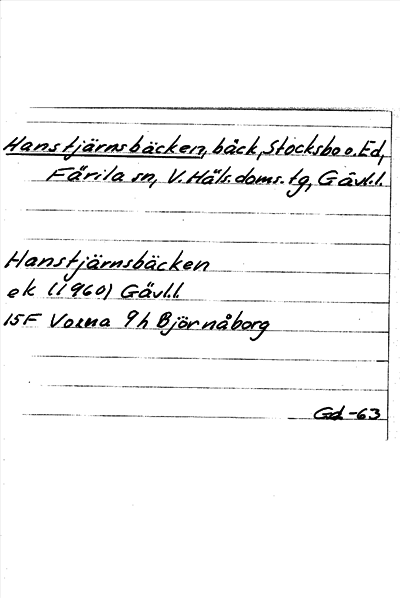 Hanstjärnsbäcken, bäck, Stocksbo o. Ed,
Färila sn, V. Häls. doms. tg, Gävl.l.
Hanstjärnsbäcken
ek (1960) Gävl.l.
15F Voxna 9h Björnåborg
Gd -63